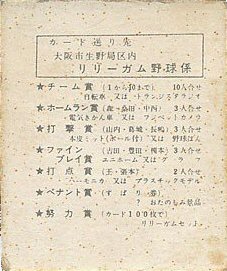 カード送り先
大阪市生野局区内
リリーガム野球係
★チーム賞 (1から10まで) 10人合せ
自転車 又は トランジスタラジオ
★ホームラン賞 (森・桑田・中西) 3人合せ
電気きかん車 又は フィベットカメラ
★打撃賞 (山内・葛城・長嶋) 3人合せ
本皮ミット(ボール付) 又は 野球ばん
★ファイン
プレイ賞 (吉田・豊田・榎本) 3人合せ
ユニホーム 又は グラブ
★打点賞 (王・張本) 2人合せ
ハーモニカ 又は プラスチックモデル
★ペナント賞 (すぱり券)
? おたのしみ景品 ?
★努力賞 (カード100枚で)
リリーガムセット